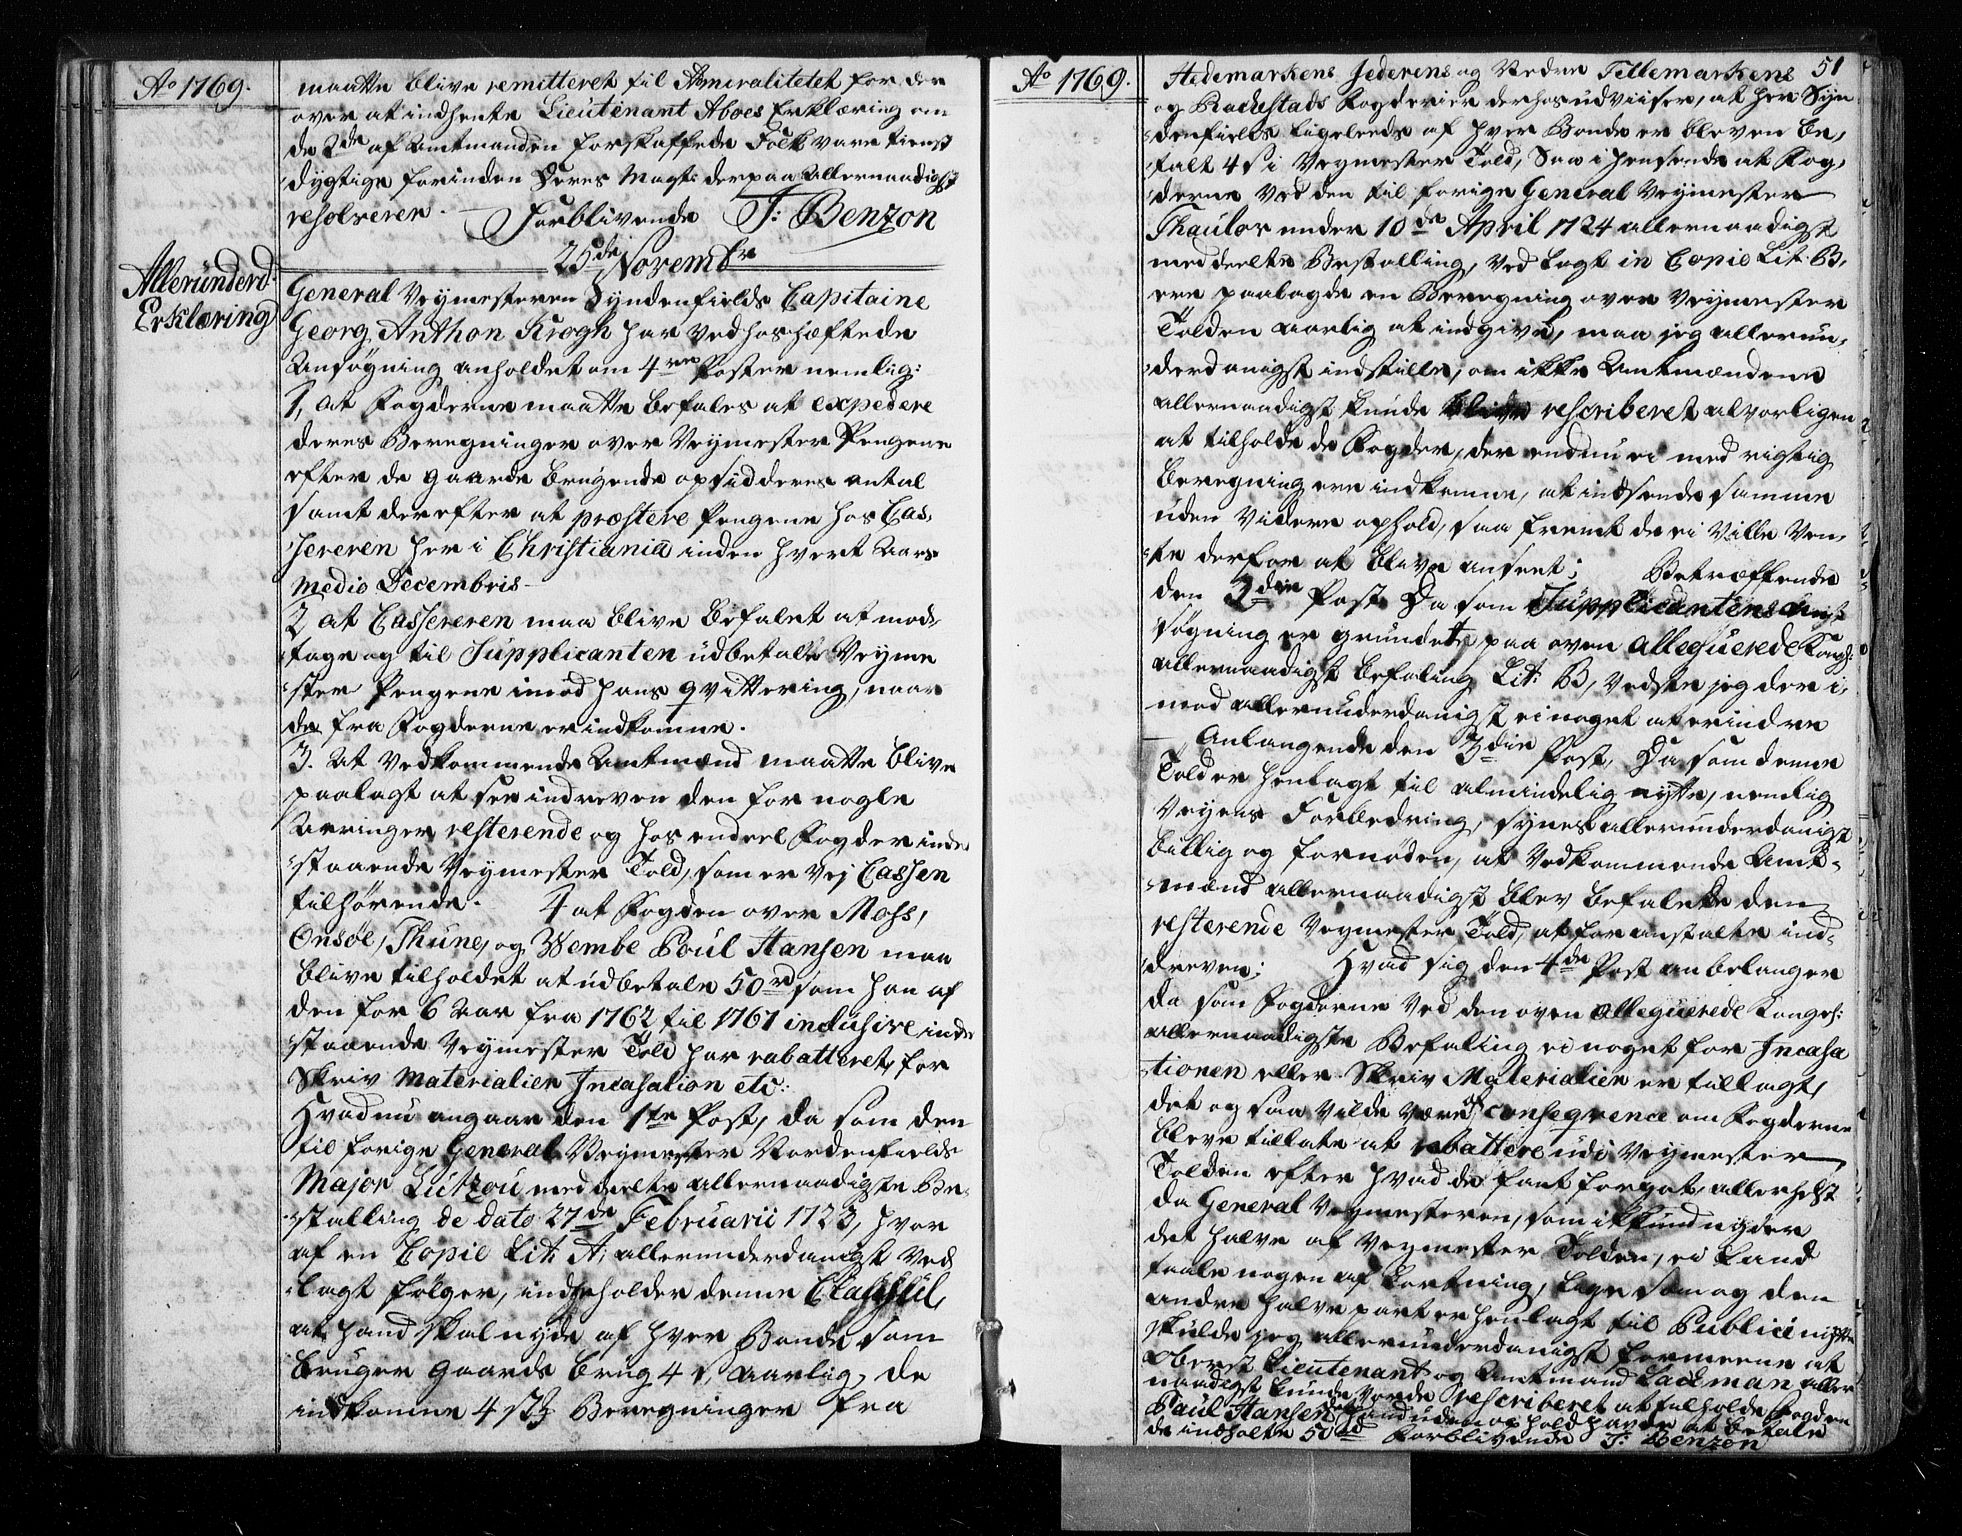 Ao 1769.
maatte blive remitteret til Admiralitetet for der
over at indhente Lieutenant Aboes Erklæring om
de 2de af Amtmanden forskaffede Folk vare tienst
dygtige forinden Deres Mayt: derpaa allernaadigst
resolverer. Forblivende J: Benzon
25de Novembr
Allerunderd.
Erklæring
General Veymesteren Syndenfields Capitaine
Georg Anthon Krogh har vedhoshæftede
Ansøgning anholdet om 4re Poster nemlig:
1, at Fogderne maatte befales at expedere
deres Beregninger over Veymester Pengene
efter de gaarde brugende opsidderes antal
samt derefter at præstere Pengene hos Cas-
sereren her i Christiania inden hvert Aars
Medio Decembris
2 at Cassereren maa blive befalet at mod-
tage og til Supplicanten udbetale Veyme
ster Pengene imod hans qvittering, naar
de fra Fogderne er indkomne.
3. at Vedkommende Amtmænd maatte blive
paalagt at see indreven den for nogle
Aaringer resterende og hos endeel Fogder inde-
staaende Veymester Told, som er Vej Cassen
tilhørende. 4 at Fogden over Moss,
Onsøe, Thune, og Wembe Poul Hansen maa
blive tilholdet at udbetale 50rd som han af
den for 6 Aar fra 1762 til 1767 inclusive inde-
staaende Veymester Told har rabatteret, for
Skriv Materialier Incasation etc:
Hvad nu angaar den 1te Post, da som den
til forige General Veymester Nordenfields
Major Lützou meddeelte allernaadigste Be-
stalling de dato 27de Februarii 1723, hvor
af en Copie Lit: A, allerunderdanigst ved
lagt følger, indeholder denne Clausul,
at hand skal nyde af hver Bonde som
bruger gaards brug 4 s, aarlig, de
indkomne 4 st: Beregninger fra
Ao 1769.
51
Hedemarkens Jederens og Nedre Tellemarkens
og Backestads Fogderier derhos udviiser, at her Syn
denfields ligeleeds af hver Bonde er bleven be-
talt 4 s i Veymester Told, Saa i henseende at Fog-
derne ved den til forige General Veymester
Thaulov under 10de April 1724 allernaadigst
meddeelte Bestalling, ved lagt in Copie Lit: B,
ere paalagde en Beregning over Veymester
Tolden aarlig at indgive, maa jeg allerun-
derdanigst indstille, om ikke Amtmændene
allernaadigst kunde blive rescriberet alvorligen
at tilholde de Fogder, der endnu ei med rigtig
beregning ere indkomne, at indsende samme
uden videre ophold, saa fremt de ei ville ven-
te derfor at blive anseet; Betræffende
den 2den Post, Da som Supplicantens An-
søgning er grundet paa oven alleguerede Kongl:
allernaadigst befaling Lit: B, vedste jeg der i-
mod allerunderdanigst ei noget at erindre
Anlangende den 3die Post, Da som denne
Told er henlagt til almindelig nytte, nemlig
Vejens Forbedring, synes allerunderdanigst
billig og fornøden, at Vedkommende Amt-
mænd allernaadigst blev befalede den
resterende Veymester Told, at foranstalte ind-
dreven; Hvad sig den 4de Post anbelanger
da som Fogderne ved den oven alleguerede Konges:
allernaadigste Befaling ei noget for Incasa
tionen eller Skriv Materialier er tillagt,
det og saa vilde være af conseqvence om Fogderne
bleve tilladte at rabattere udi Veymester
Tolden efter hvad de fant for got, allerhelst
da General Veymesteren, som ikkund nyder
det halve af Veymester Tolden, ei kand
taale nogen afkortning, lige som og den
andre halve part er henlagt til Publici nytte
skulde jeg allerunderdanigst formeene at
Oberst Lieutenant og Amtmand Lackman aller
naadigst kunde vorde rescriberet at tilholde Fogden
Paul Hansen uden ophold at betale
de indholte 50rd Forblivende J: Benzon